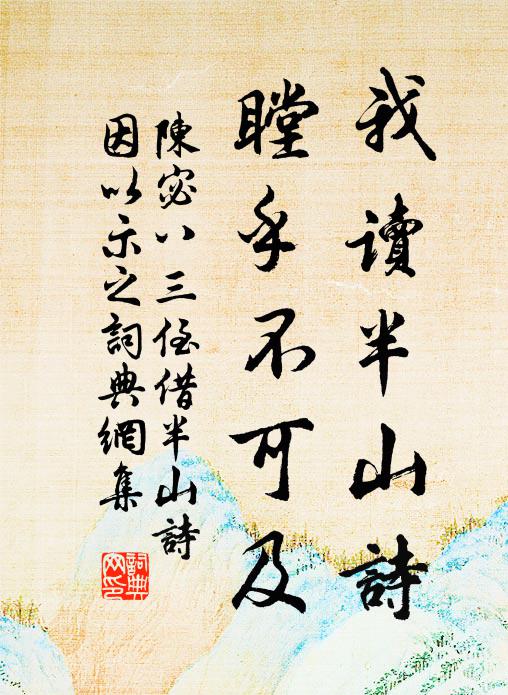 我讀半山詩
瞠乎不可及
陳宓八三侄借半山詩
因以示之詞典網集
詞典
网印